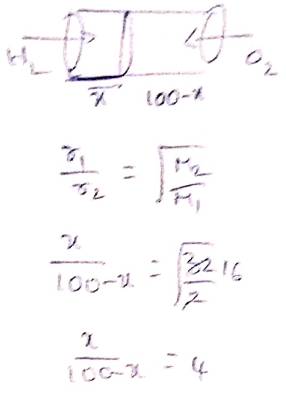 H₂ O₂
x 100-x
r₁/r₂ = √(M₂/M₁)
x/(100-x) = √(32/2) 16
x/(100-x) = 4